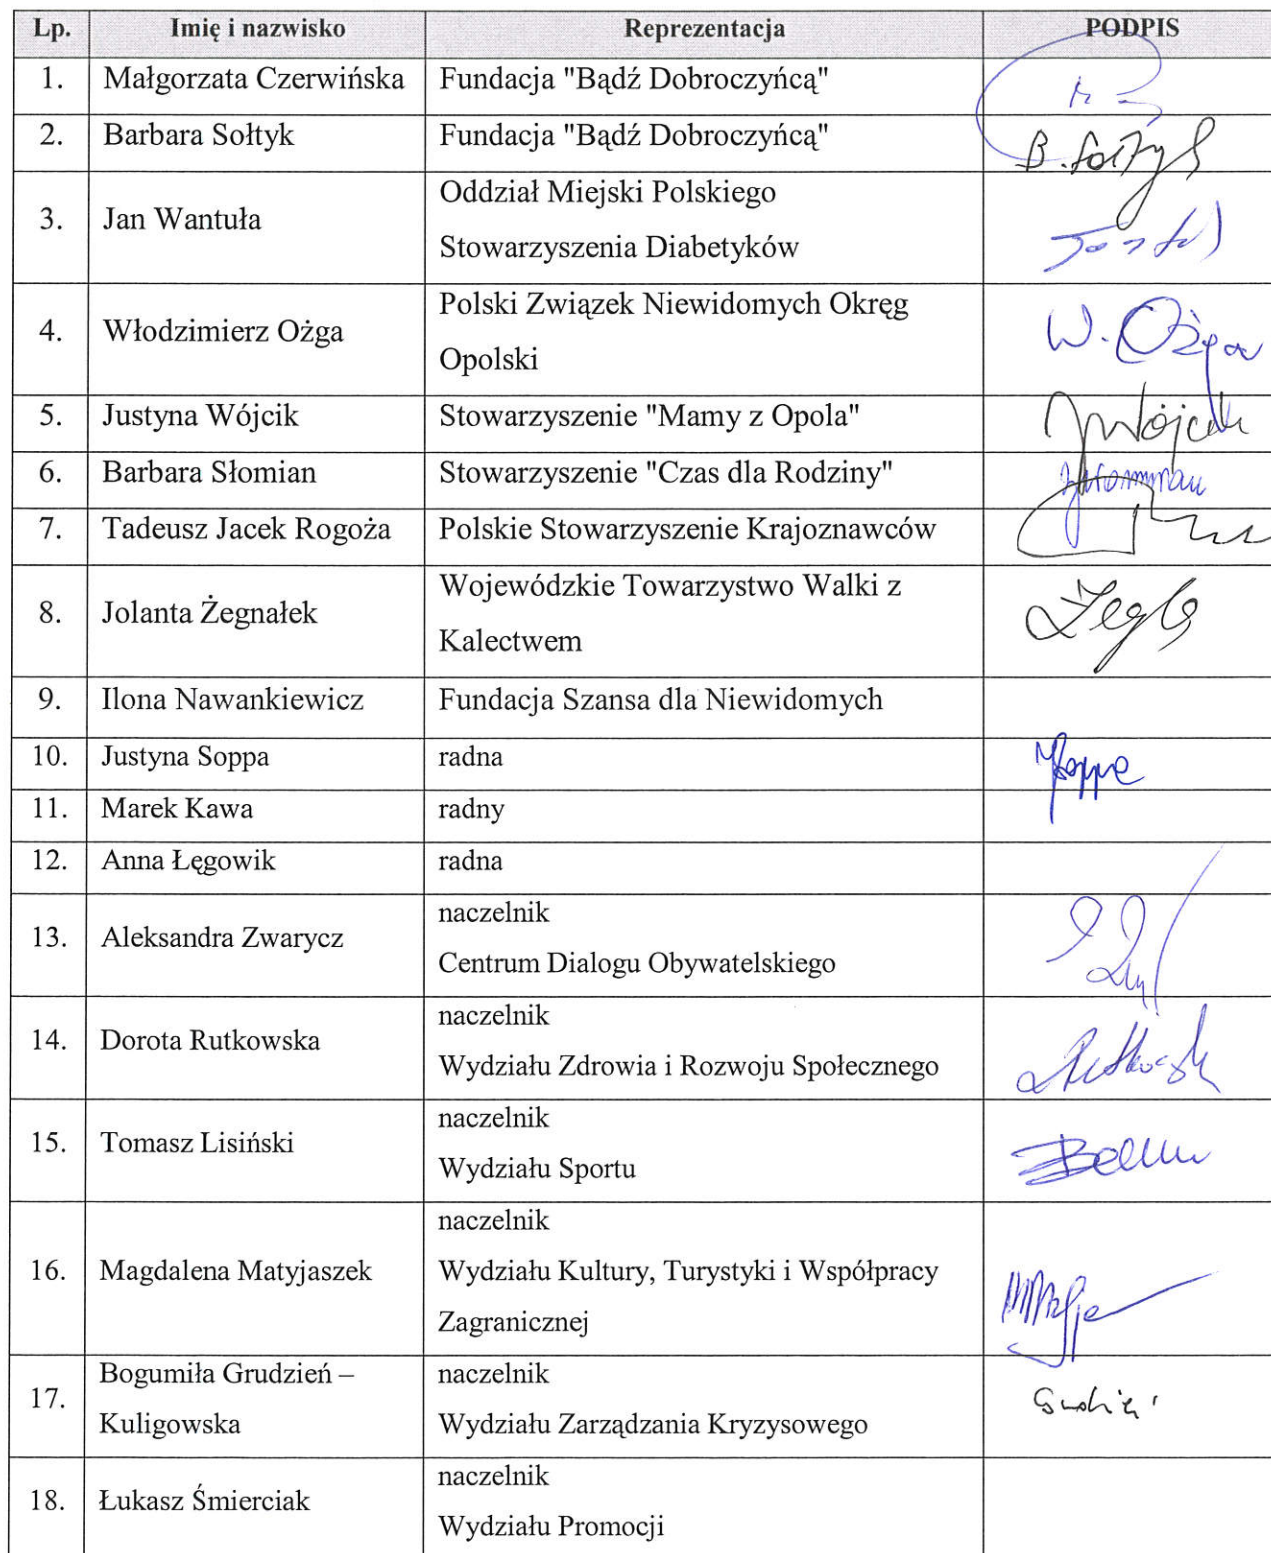 Lp. Imię i nazwisko Reprezentacja PODPIS
1. Małgorzata Czerwińska Fundacja "Bądź Dobroczyńcą"
2. Barbara Sołtyk Fundacja "Bądź Dobroczyńcą" B. Sołtys
3. Jan Wantuła Oddział Miejski Polskiego
Stowarzyszenia Diabetyków
4. Włodzimierz Ożga Polski Związek Niewidomych Okręg
Opolski W. Ożga
5. Justyna Wójcik Stowarzyszenie "Mamy z Opola" JWójcik
6. Barbara Słomian Stowarzyszenie "Czas dla Rodziny"
7. Tadeusz Jacek Rogoża Polskie Stowarzyszenie Krajoznawców
8. Jolanta Żegnałek Wojewódzkie Towarzystwo Walki z
Kalectwem
9. Ilona Nawankiewicz Fundacja Szansa dla Niewidomych
10. Justyna Soppa radna
11. Marek Kawa radny
12. Anna Łęgowik radna
13. Aleksandra Zwarycz naczelnik
Centrum Dialogu Obywatelskiego
14. Dorota Rutkowska naczelnik
Wydziału Zdrowia i Rozwoju Społecznego
15. Tomasz Lisiński naczelnik
Wydziału Sportu
16. Magdalena Matyjaszek naczelnik
Wydziału Kultury, Turystyki i Współpracy
Zagranicznej
17. Bogumiła Grudzień – naczelnik
Kuligowska Wydziału Zarządzania Kryzysowego
18. Łukasz Śmierciak naczelnik
Wydziału Promocji